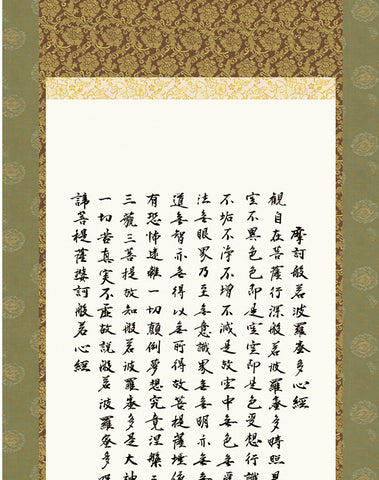 摩訶般若波羅蜜多心經
観自在菩薩行深般若波羅蜜多時照見
空不異色色即是空空即是色受想行識
不垢不浄不増不減是故空中無色無受
法無眼界乃至無意識界無無明亦無無
道無智亦無得以無所得故菩提薩埵依
有恐怖遠離一切顛倒夢想究竟涅槃三
三藐三菩提故知般若波羅蜜多是大神
一切苦真実不虚故説般若波羅蜜多呪
諦菩提薩婆訶般若心經